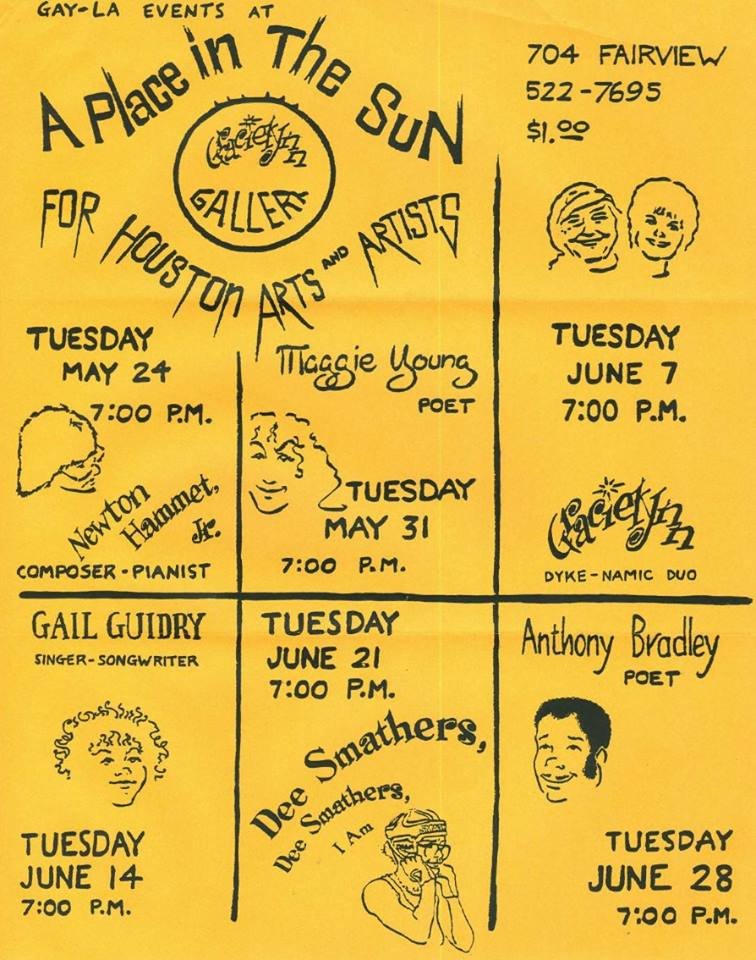 GAY-LA EVENTS AT
A Place in The Sun
GALLERY
FOR HOUSTON ARTS AND ARTISTS
704 FAIRVIEW
522-7695
$1.00
TUESDAY
MAY 24
7:00 P.M.
Newton
Hammet,
Jr.
COMPOSER-PIANIST
Maggie Young
POET
TUESDAY
MAY 31
7:00 P.M.
TUESDAY
JUNE 7
7:00 P.M.
DYKE-NAMIC DUO
GAIL GUIDRY
SINGER-SONGWRITER
TUESDAY
JUNE 14
7:00 P.M.
TUESDAY
JUNE 21
7:00 P.M.
Dee Smathers,
Dee Smathers,
I Am
Anthony Bradley
POET
TUESDAY
JUNE 28
7:00 P.M.